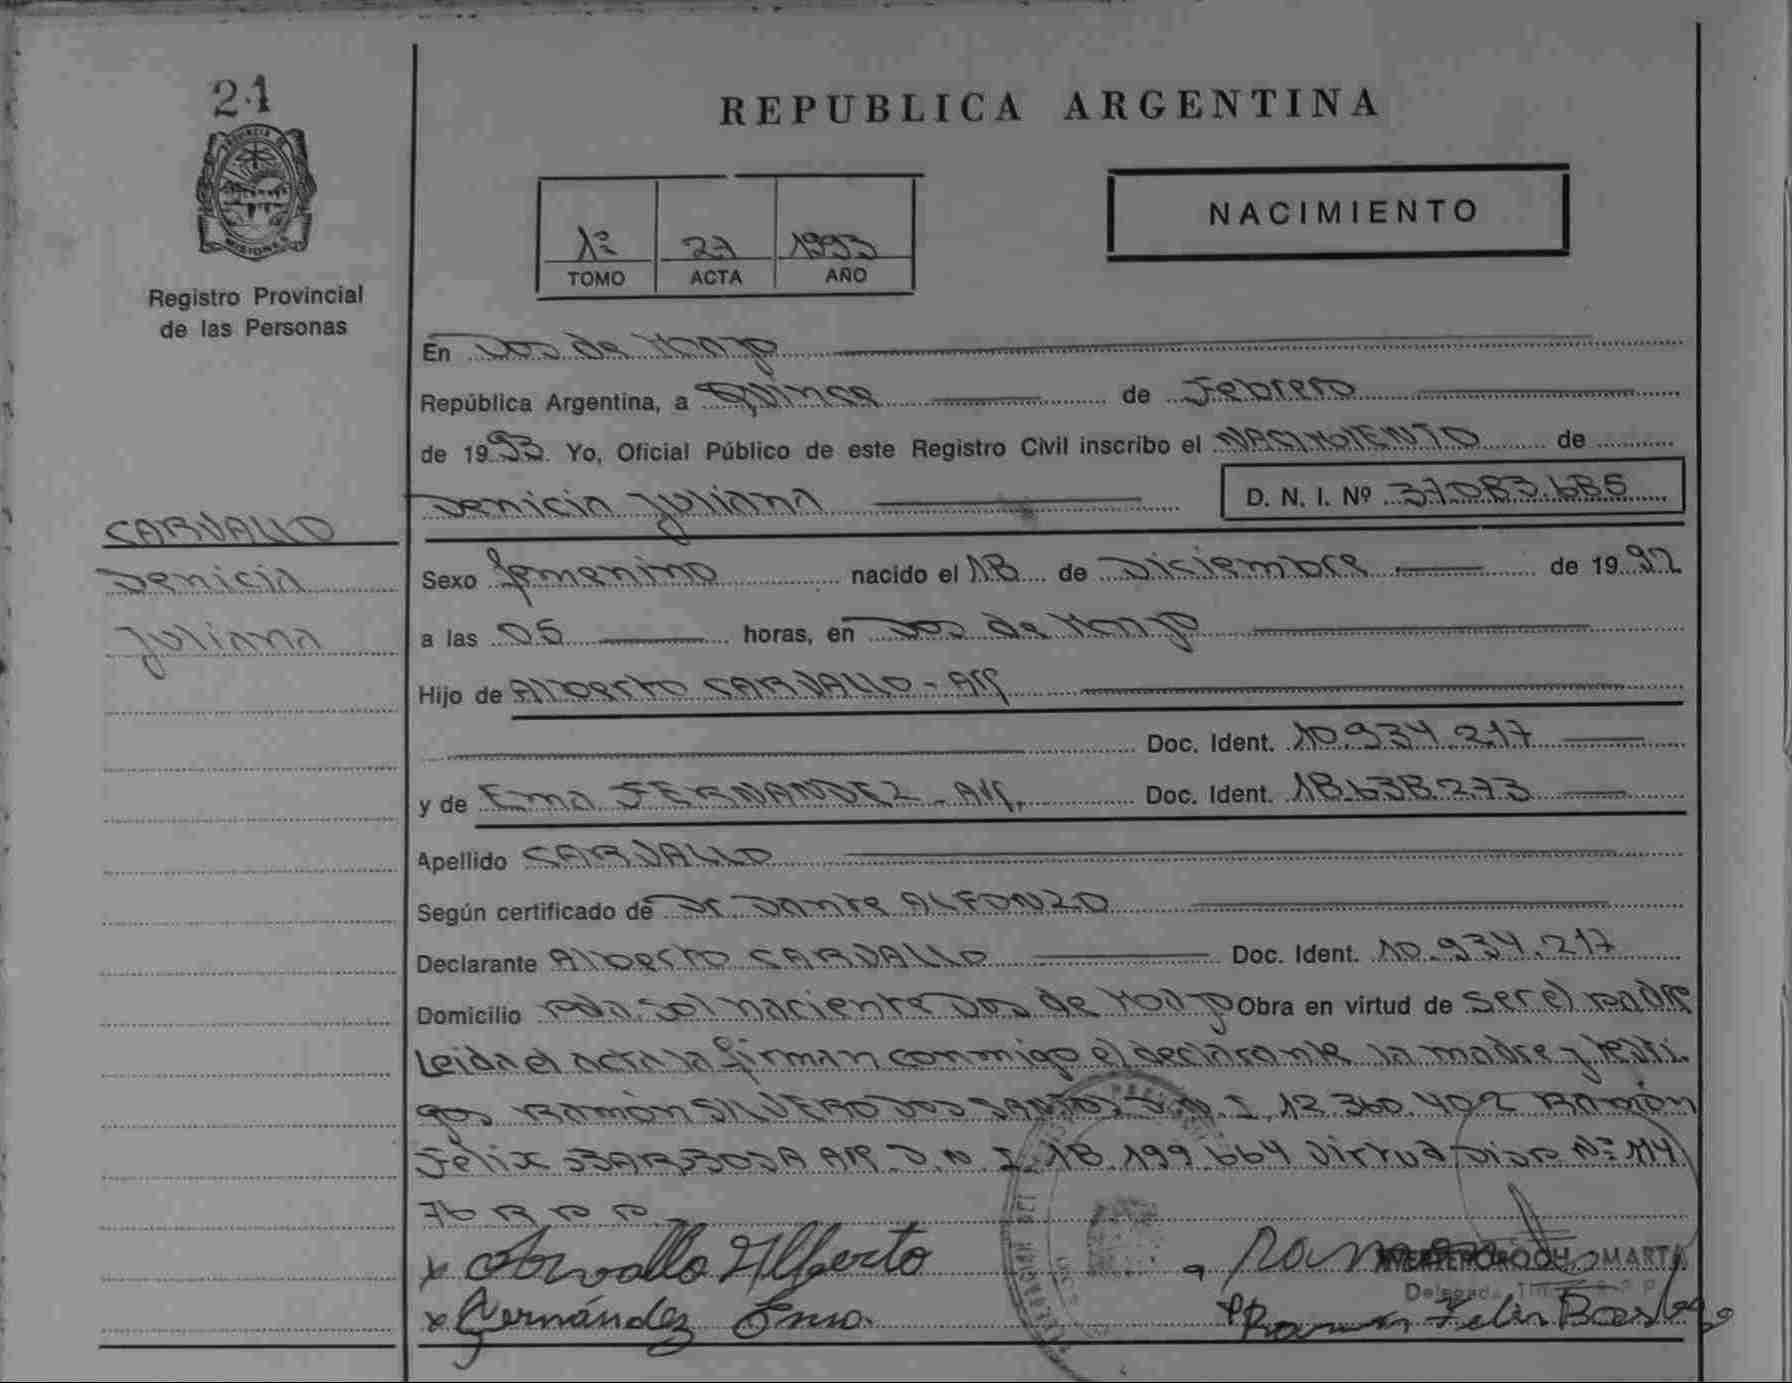 21
REPUBLICA ARGENTINA
PROVINCIA DE MISIONES
NACIMIENTO
1º 27 1993
TOMO ACTA AÑO
Registro Provincial
de las Personas
En Dos de Mayo
República Argentina, a Quince de Febrero
de 1993. Yo, Oficial Público de este Registro Civil inscribo el NACIMIENTO de
Denicia Juliana D. N. I. Nº 37.083.685
CARVALLO
Denicia
Juliana
Sexo femenino nacido el 18 de Diciembre de 1992
a las 05 horas, en Dos de Mayo
Hijo de Alberto CARVALLO - Arg
Doc. Ident. 10.934.217
y de Ema FERNANDEZ - Arg. Doc. Ident. 18.638.273
Apellido CARVALLO
Según certificado de Dr. Dante ALFONZO
Declarante Alberto CARVALLO Doc. Ident. 10.934.217
Domicilio Sol naciente Dos de Mayo Obra en virtud de ser el padre
Leida el acta la firman conmigo el declarante la madre y testi
gos Ramón SILVERO DOS SANTOS D.N.I. 12.360.402 Ramón
Felix BARBOSA Arg. D.N.I. 18.199.664 Nº 114
76 R P P
x Carvallo Alberto
MARTA
Delegada
x Fernández Ema.
Ramon Felix Barboza